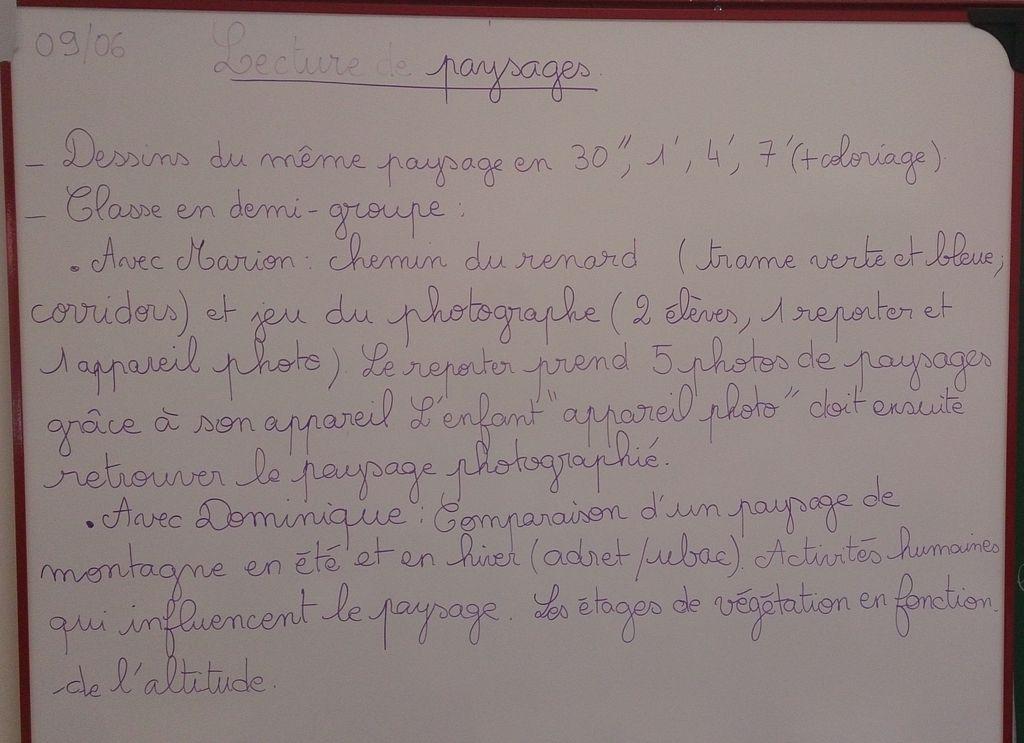 09/06 Lecture de paysages.
- Dessins du même paysage en 30", 1', 4', 7' (+coloriage).
- Classe en demi-groupe :
• Avec Marion : chemin du renard (trame verte et bleue,
corridors) et jeu du photographe (2 élèves, 1 reporter et
1 appareil photo). Le reporter prend 5 photos de paysages
grâce à son appareil L'enfant "appareil photo" doit ensuite
retrouver le paysage photographié.
• Avec Dominique : Comparaison d'un paysage de
montagne en été et en hiver (adret/ubac). Activités humaines
qui influencent le paysage. Les étages de végétation en fonction
de l'altitude.